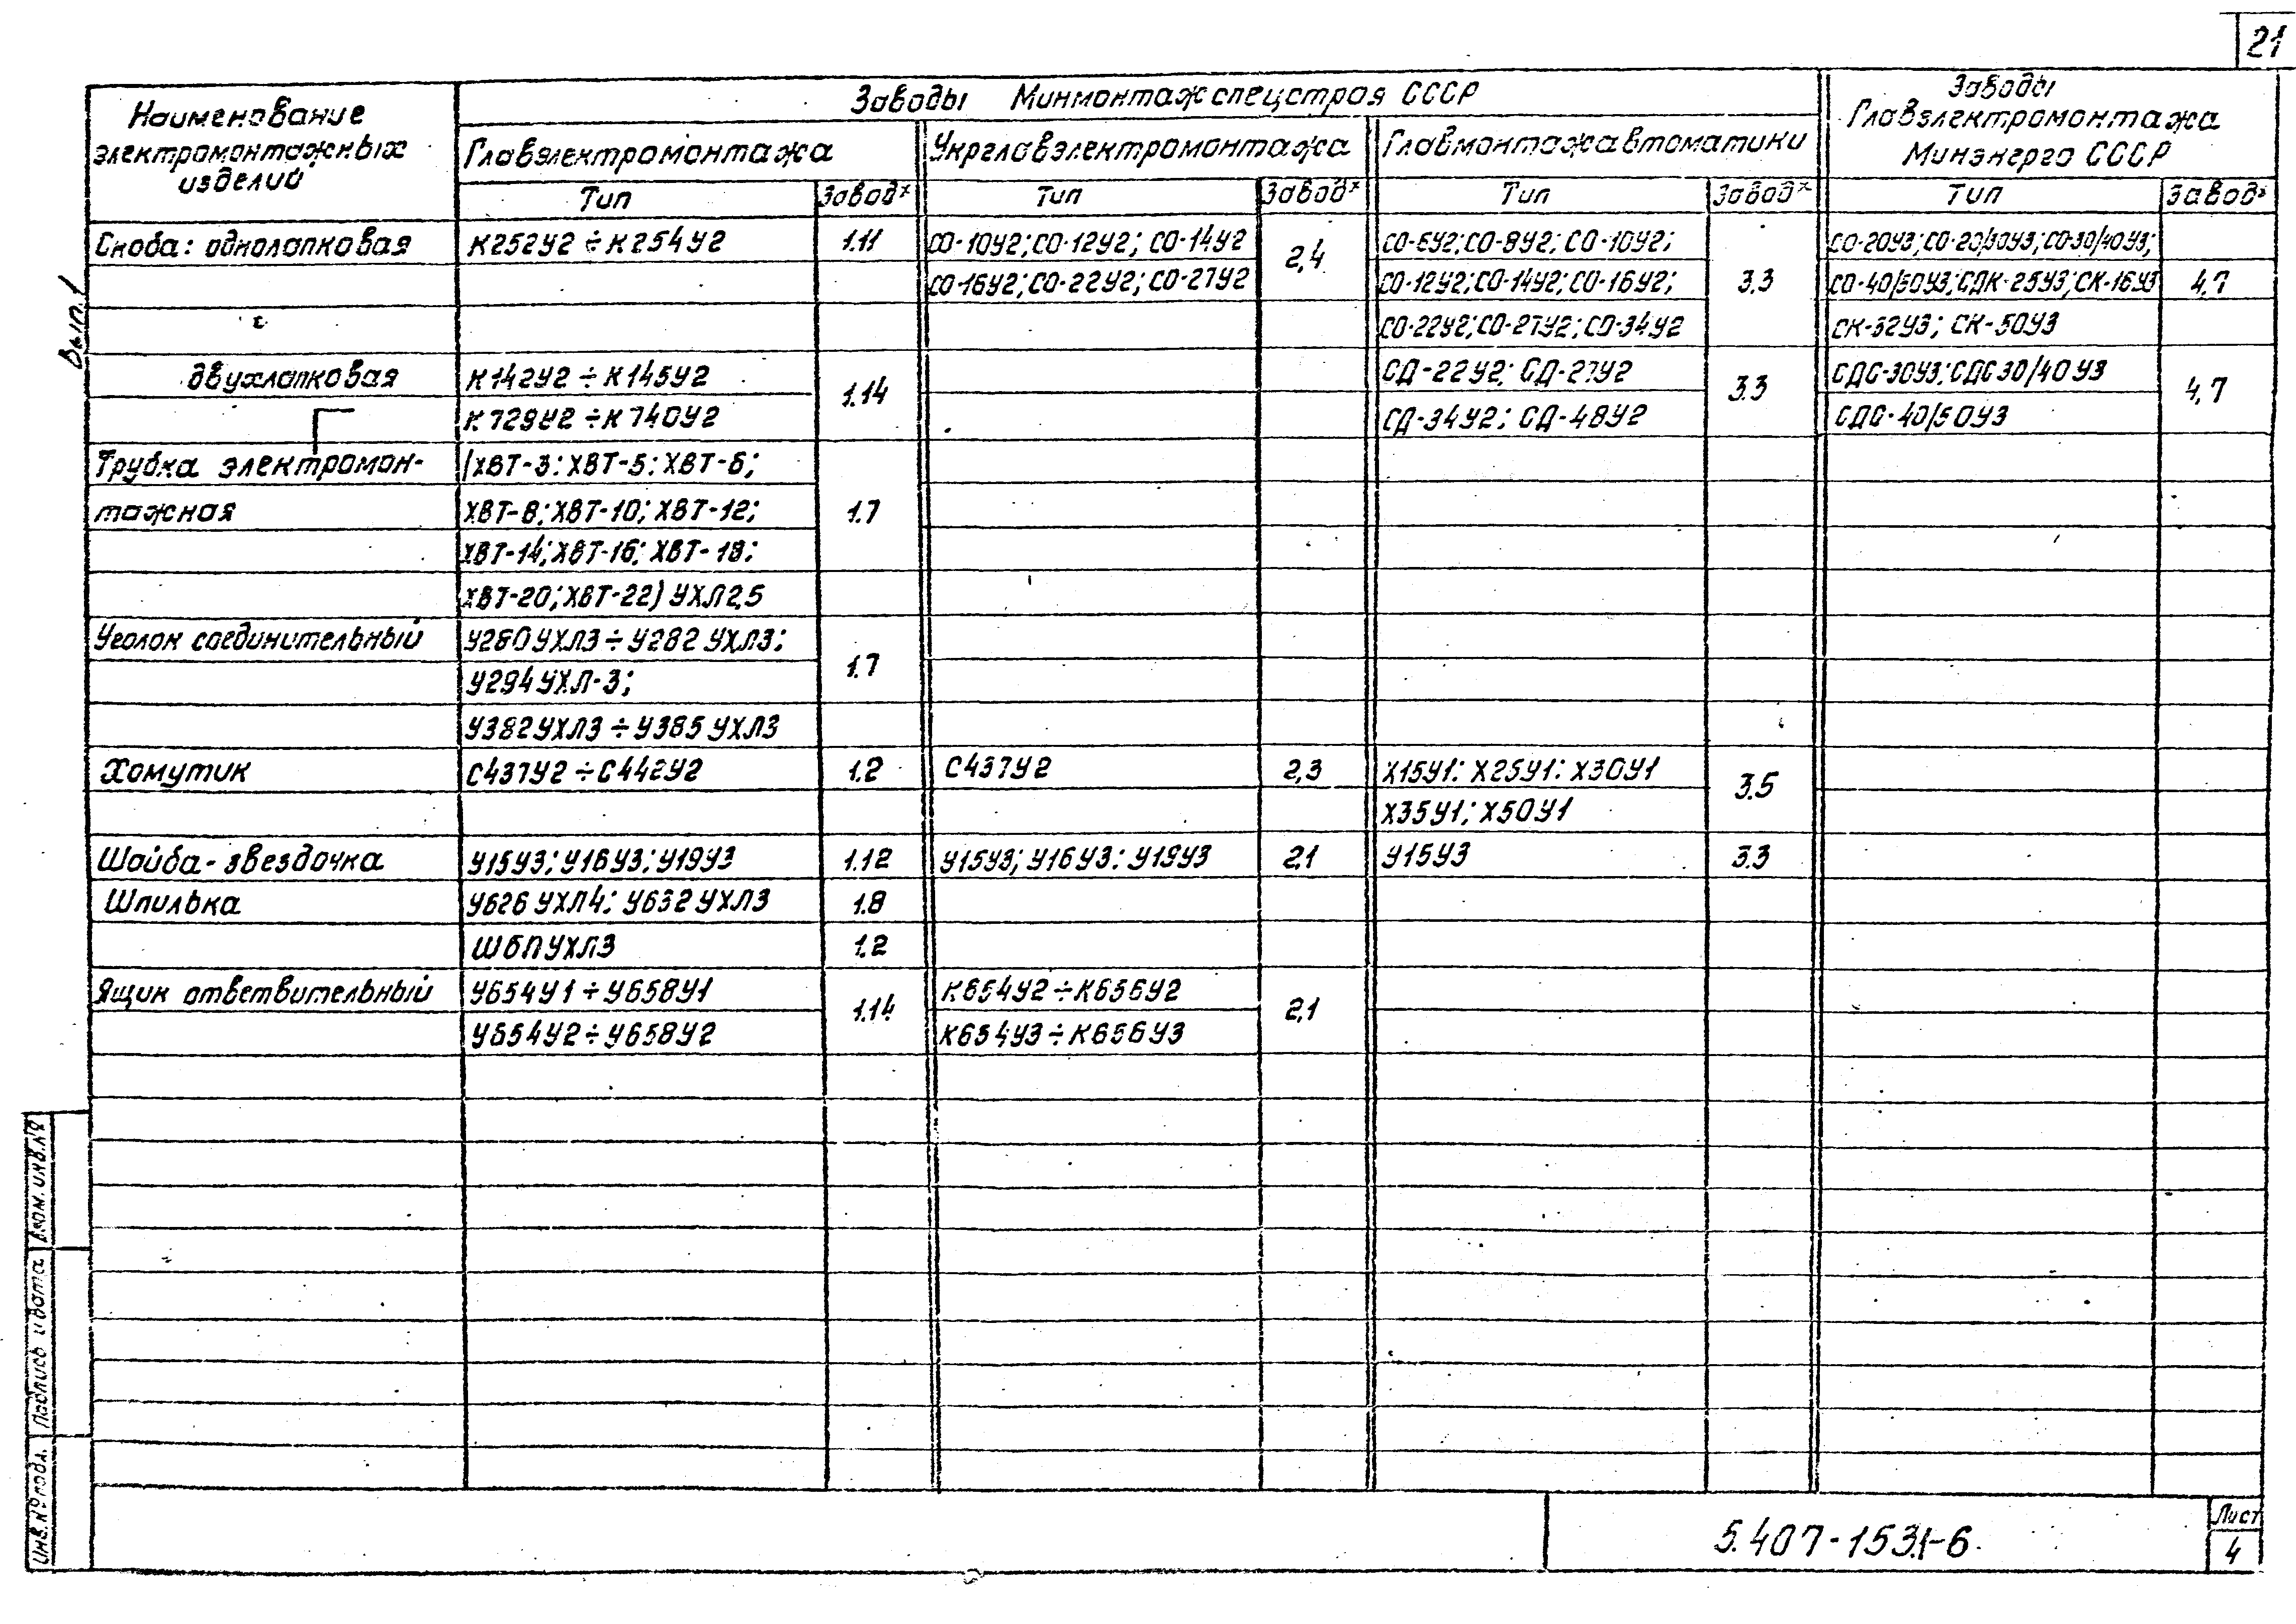 21
Наименование электромонтажных изделий
Заводы Минмонтажспецстроя СССР
Заводы Главэлектромонтажа Минэнерго СССР
Главэлектромонтажа Укрглавэлектромонтажа Главмонтажавтоматики
Тип Завод× Тип Завод× Тип Завод× Тип Завод×
Вып.1
Скоба: однолапковая К252У2÷К254У2 1.11 СО-10У2; СО-12У2; СО-14У2 2,4 СО-6У2; СО-8У2; СО-10У2; СО-20У3; СО-20/30У3; СО-30/40У3;
СО-16У2; СО-22У2; СО-27У2 СО-12У2; СО-14У2; СО-16У2; 3.3 СО-40/50У3; СДК-25У3; СК-16У3 4,7
СО-22У2; СО-27У2; СО-34У2 СК-32У3; СК-50У3
двухлапковая К142У2÷К145У2 1.14 СД-22У2; СД-27У2 3.3 СДС-30У3; СДС30/40У3 4,7
К729У2÷К740У2 СД-34У2; СД-48У2 СДС-40/50У3
Трубка электромон- (ХВТ-3; ХВТ-5; ХВТ-6;
тажная ХВТ-8; ХВТ-10; ХВТ-12; 1.7
ХВТ-14; ХВТ-16; ХВТ-18;
ХВТ-20; ХВТ-22) УХЛ2,5
Уголок соединительный У280УХЛ3÷У282УХЛ3;
У294УХЛ-3; 1.7
У382УХЛ3÷У385УХЛ3
Хомутик С437У2÷С442У2 1.2 С437У2 2,3 Х15У1; Х25У1; Х30У1 3.5
Х35У1; Х50У1
Шайба-звездочка У15У3; У16У3; У19У3 1.12 У15У3; У16У3; У19У3 2.1 У15У3 3.3
Шпилька У626УХЛ4; У632УХЛ3 1.8
ШБПУХЛ3 1.2
Ящик ответвительный У654У1÷У658У1 1.14 К654У2÷К656У2 2.1
У654У2÷У658У2 К654У3÷К656У3
Инв.№подл. Подпись и дата Взам.инв.№
5.407-153.1-6
Лист
4